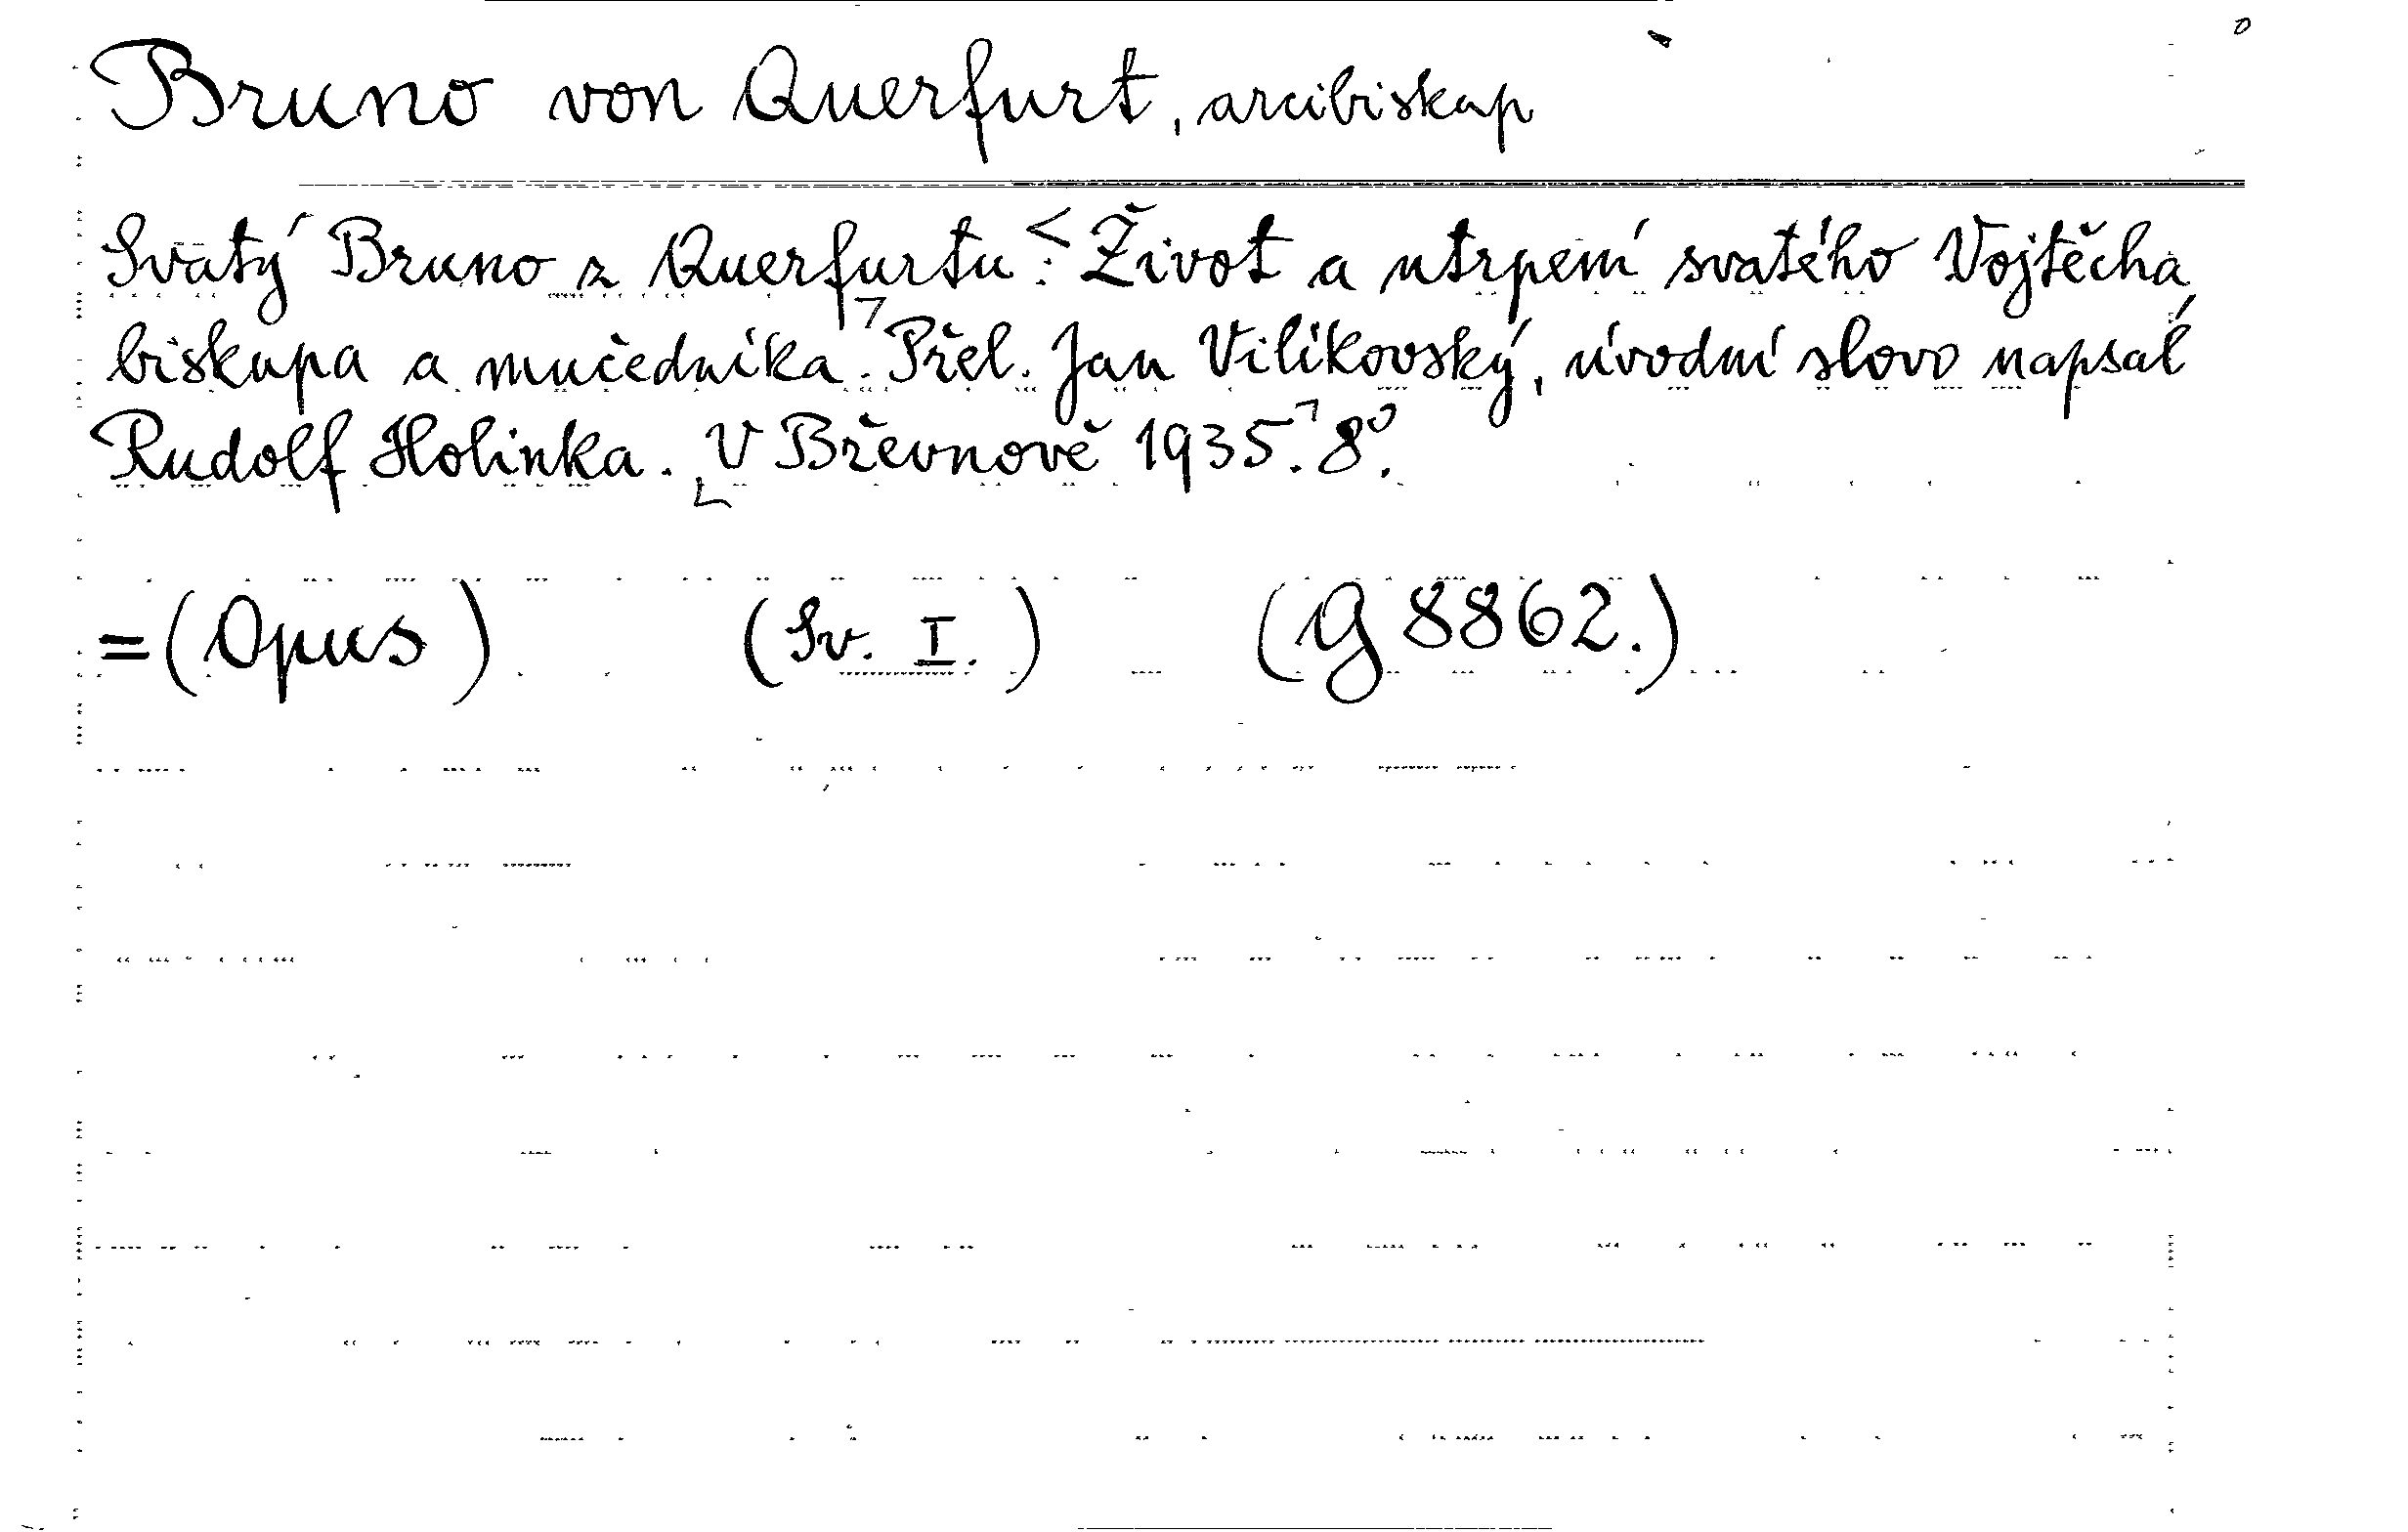 Bruno von Querfurt, arcibiskup
Svatý Bruno z Querfurtu: Život a utrpení svatého Vojtěcha,
biskupa a mučedníka. Přel. Jan Vilikovský, úvodní slovo napsal
Rudolf Holinka. V Břevnově 1935. 8°.
=(Opus) (Sv. I.) (G 8862.)